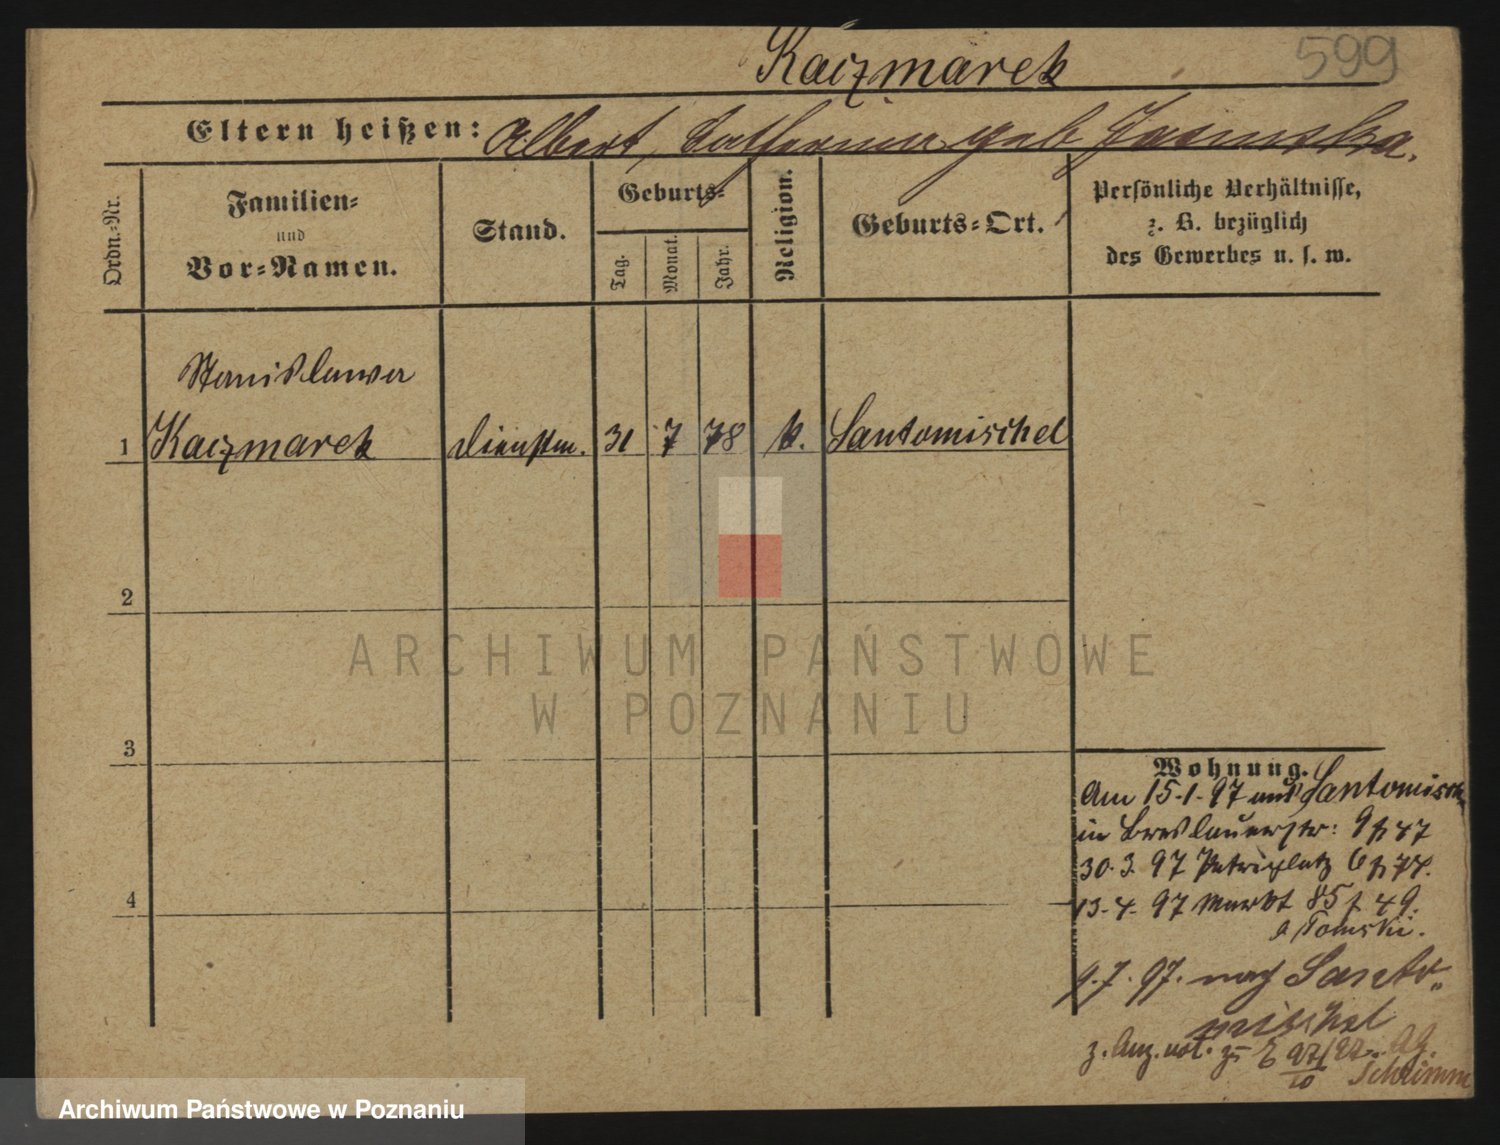 Kaczmarek 599
Eltern heißen: Albert, Catharina geb Jasinska.
Ordn.-Nr.
Familien-
und
Vor-Namen.
Stand.
Geburts-
Tag.
Monat.
Jahr.
Religion.
Geburts-Ort.
Persönliche Verhältnisse,
z. B. bezüglich
des Gewerbes u. s. w.
Stanislawa
1 Kaczmarek Dienstm. 31 7 78 k. Santomischel
2
ARCHIWUM PAŃSTWOWE
W POZNANIU
3
4
Wohnung.
Am 15.1.97 aus Santomisch
in Breslauerstr: 9
30.3.97 Petriplatz 6
13.4.97 Markt 85 49.
Tomski.
9.7.97. nach Santo„
mischel
z. Anz. not. zu E 97/97. Ag.
10 Schrimm
Archiwum Państwowe w Poznaniu